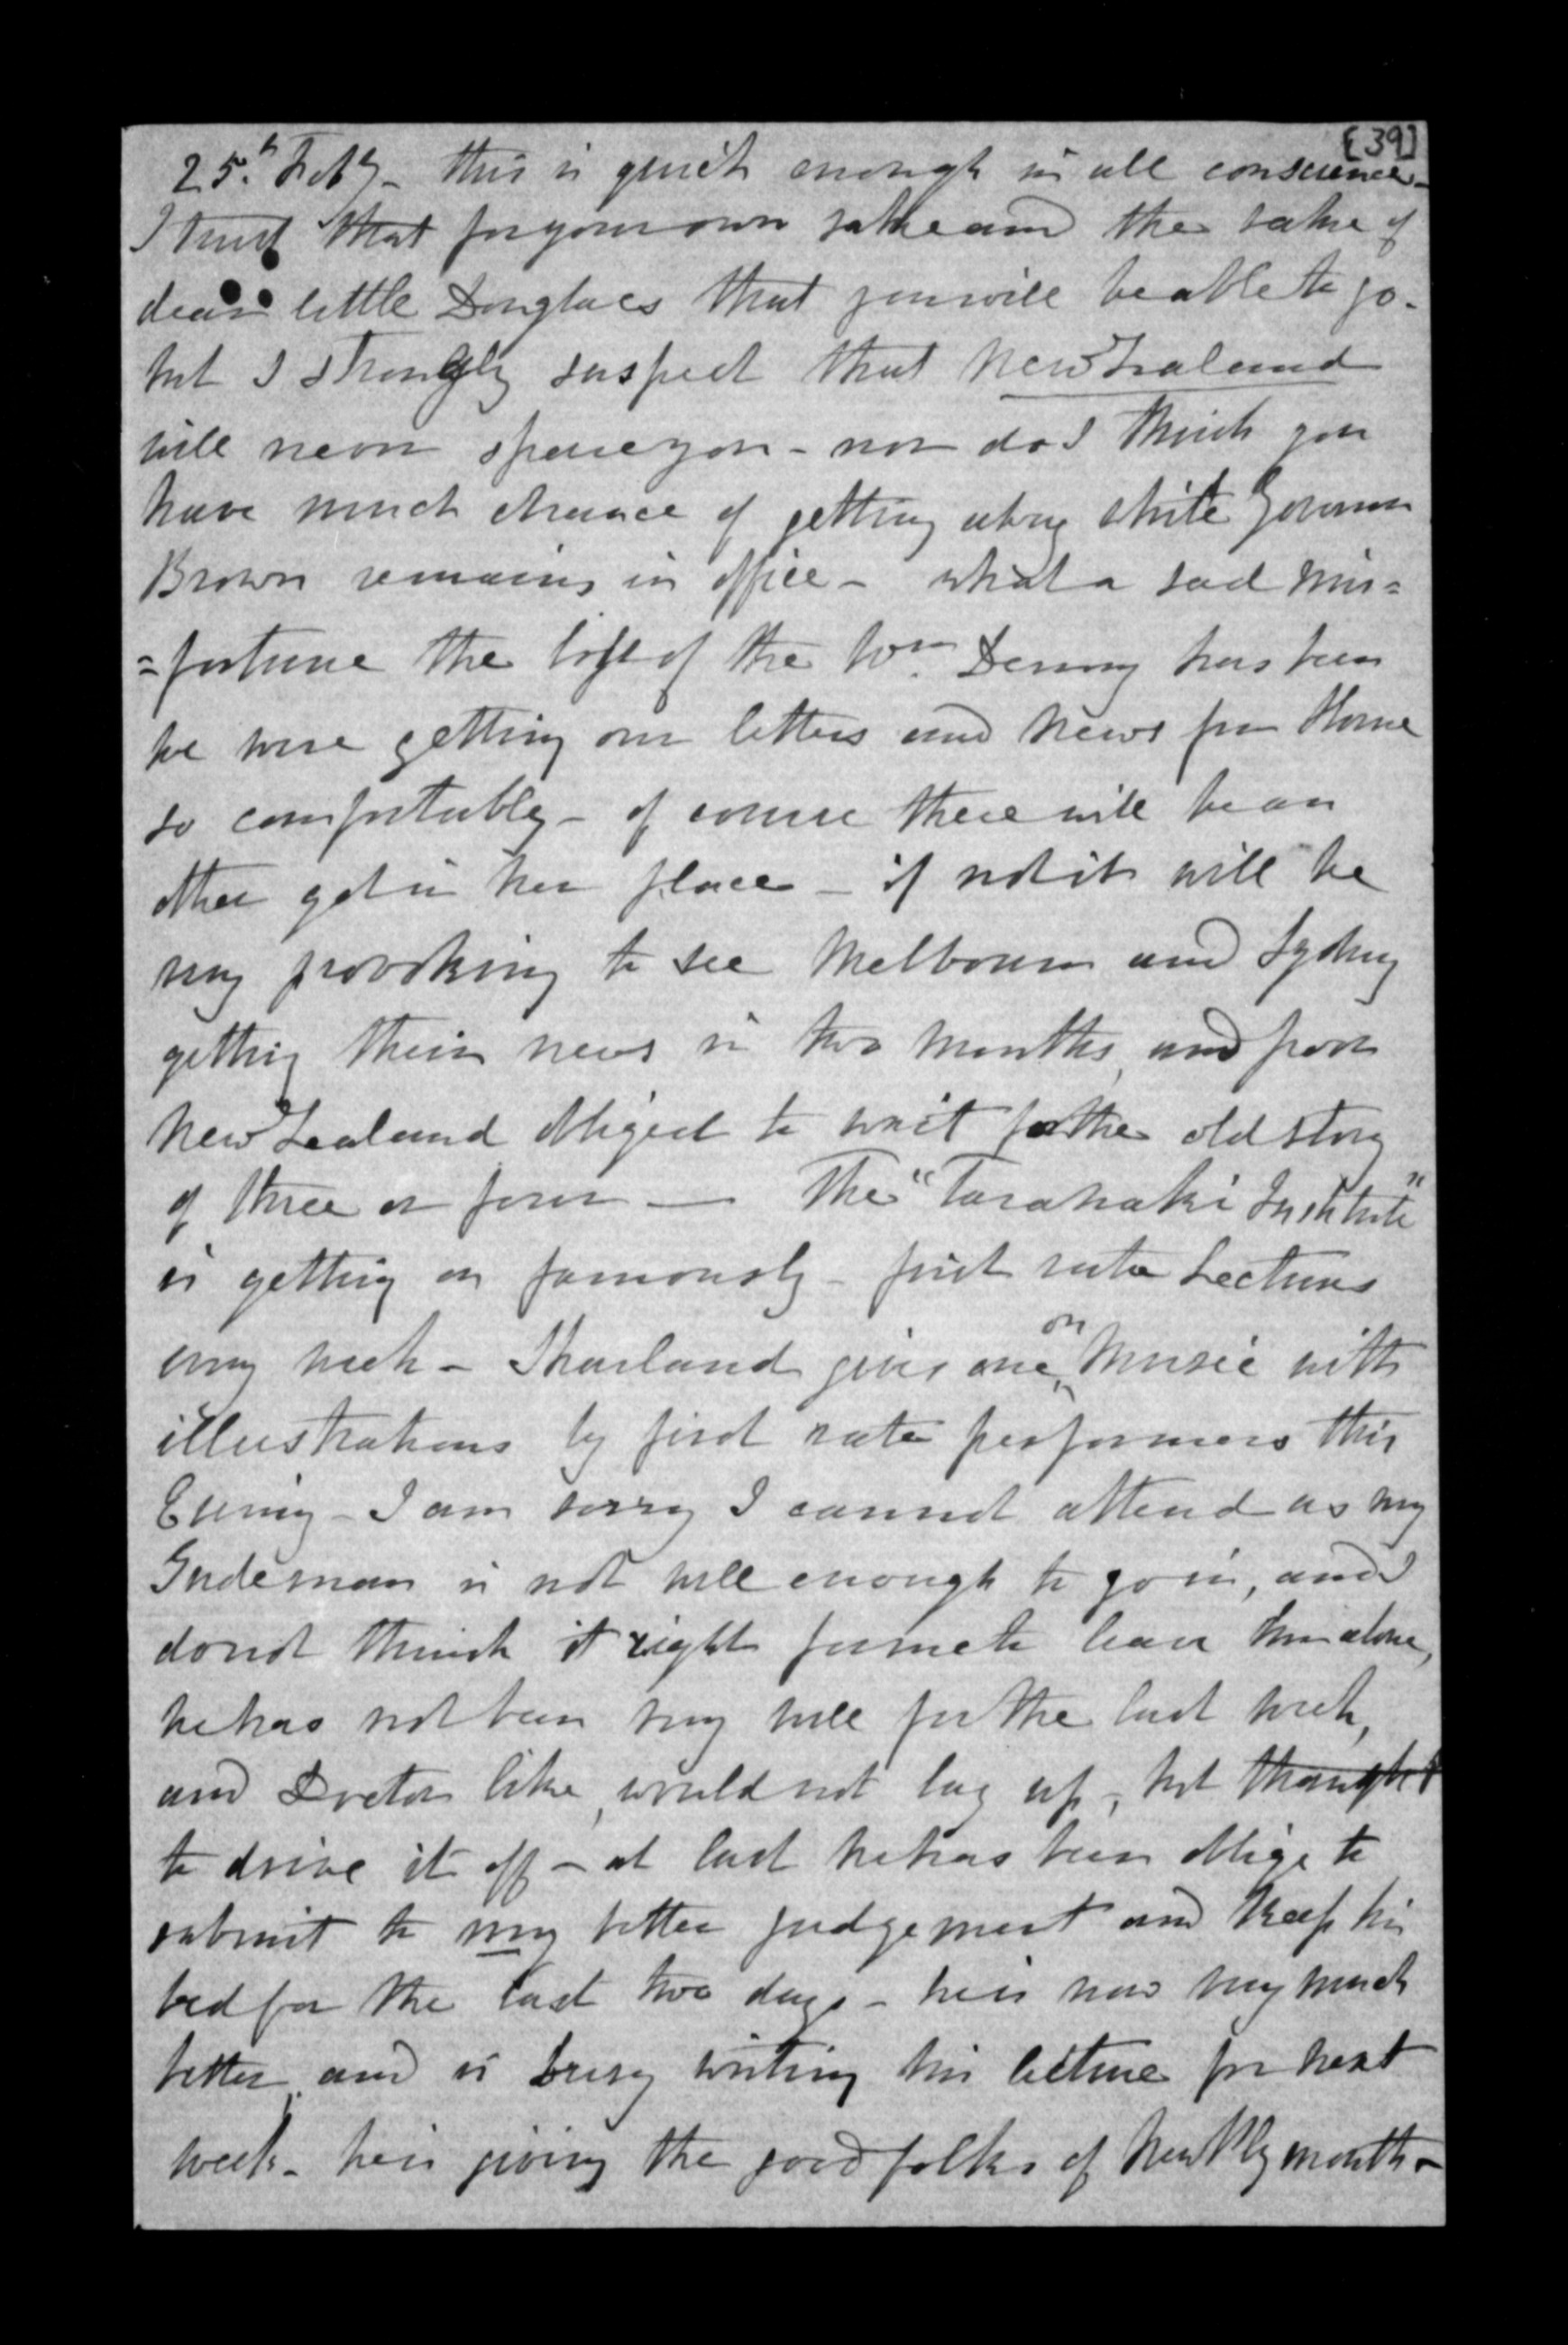 [39]
25.th Feby - this is quick enough in all conscience -
I trust that for your own sake and the sake of
dear little Douglas that you will be able to go -
but I strongly suspect that New Zealand
will never spare you - nor do I think you
have much chance of getting away while Governor
Brown remains in office - what a sad mis=
=fortune the loss of the Wm. Denny has been
we were getting our letters and news from Home
so comfortably - of course there will be an
other got in her place - if not it will be
very provoking to see Melbourne and Sydney
getting their news in two months, and poor
New Zealand obliged to wait for the old story
of three or four — The "Taranaki Institute"
is getting on famously - first rate Lectures
every week - Sharland gives one on Music with
illustrations by first rate performers this
Evening - I am sorry I cannot attend as my
Gudeman is not well enough to go in, and I
do not think it right for me to leave him alone,
he has not been very well for the last week,
and Doctor like, would not lay up, but thought
to drive it off - at last he has been oblige to
submit to my better judgement and keep his
bed for the last two days - he is now very much
better, and is busy writing his lecture for next
week - he is giving the good folks of New Plymouth -